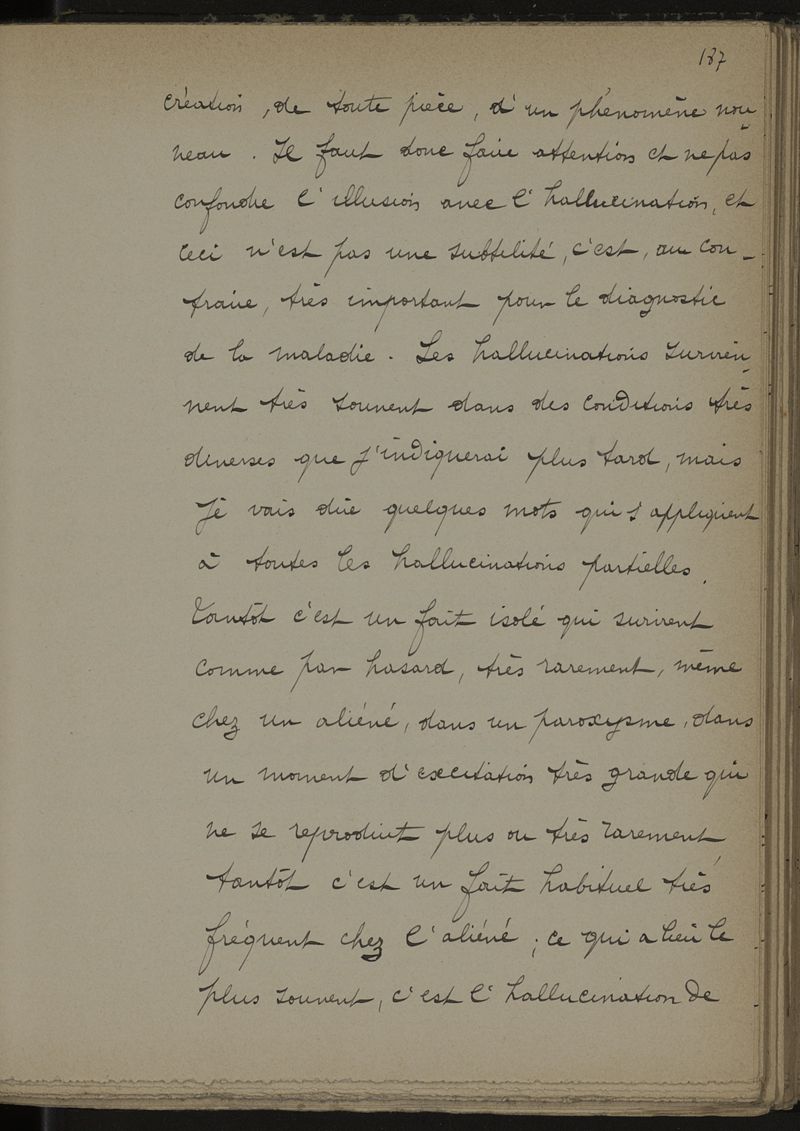 187
création, de toute pièce, d'un phénomène nou-
veau. Il faut donc faire attention et ne pas
confondre l'illusion avec l'hallucination, et
ceci n'est pas une subtilité, c'est, au con-
traire, très important pour le diagnostic
de la maladie. Les hallucinations survien-
nent très souvent dans des conditions très
diverses que j'indiquerai plus tard, mais
je vais dire quelques mots qui s'appliquent
à toutes les hallucinations partielles.
Tantôt c'est un fait isolé qui survient
comme par hasard, très rarement, même
chez un aliéné, dans un paroxysme, dans
un moment d'excitation très grande qui
ne se reproduit plus ou très rarement,
tantôt c'est un fait habituel très
fréquent chez l'aliéné ; ce qui a lieu le
plus souvent, c'est l'hallucination de